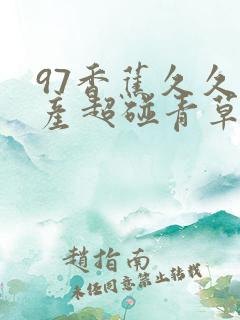 97香蕉久久
産超碰青草
趙指南
未任同意禁止转载